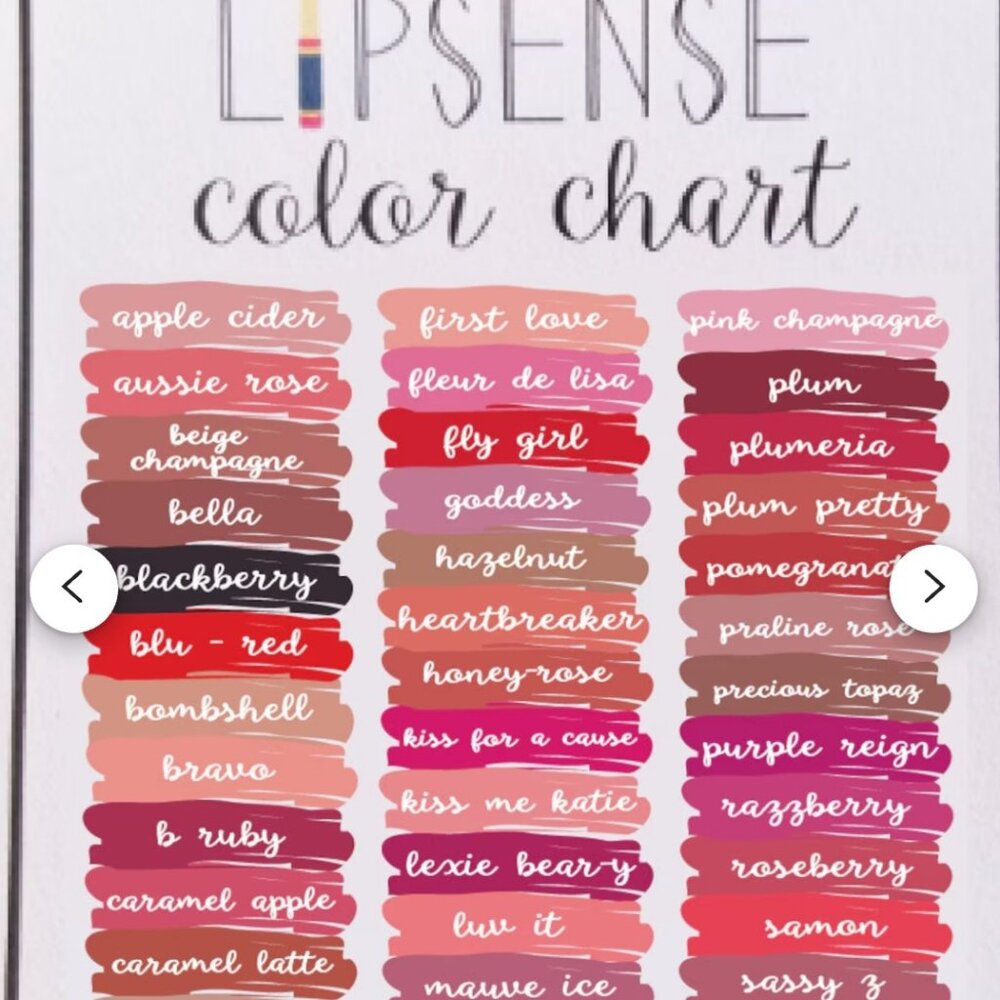 LIPSENSE
color chart
apple cider
aussie rose
beige
champagne
bella
blackberry
blu - red
bombshell
bravo
b ruby
caramel apple
caramel latte
first love
fleur de lisa
fly girl
goddess
hazelnut
heartbreaker
honey-rose
kiss for a cause
kiss me katie
lexie bear-y
luv it
mauve ice
pink champagne
plum
plumeria
plum pretty
praline rose
precious topaz
purple reign
razzberry
roseberry
samon
sassy z